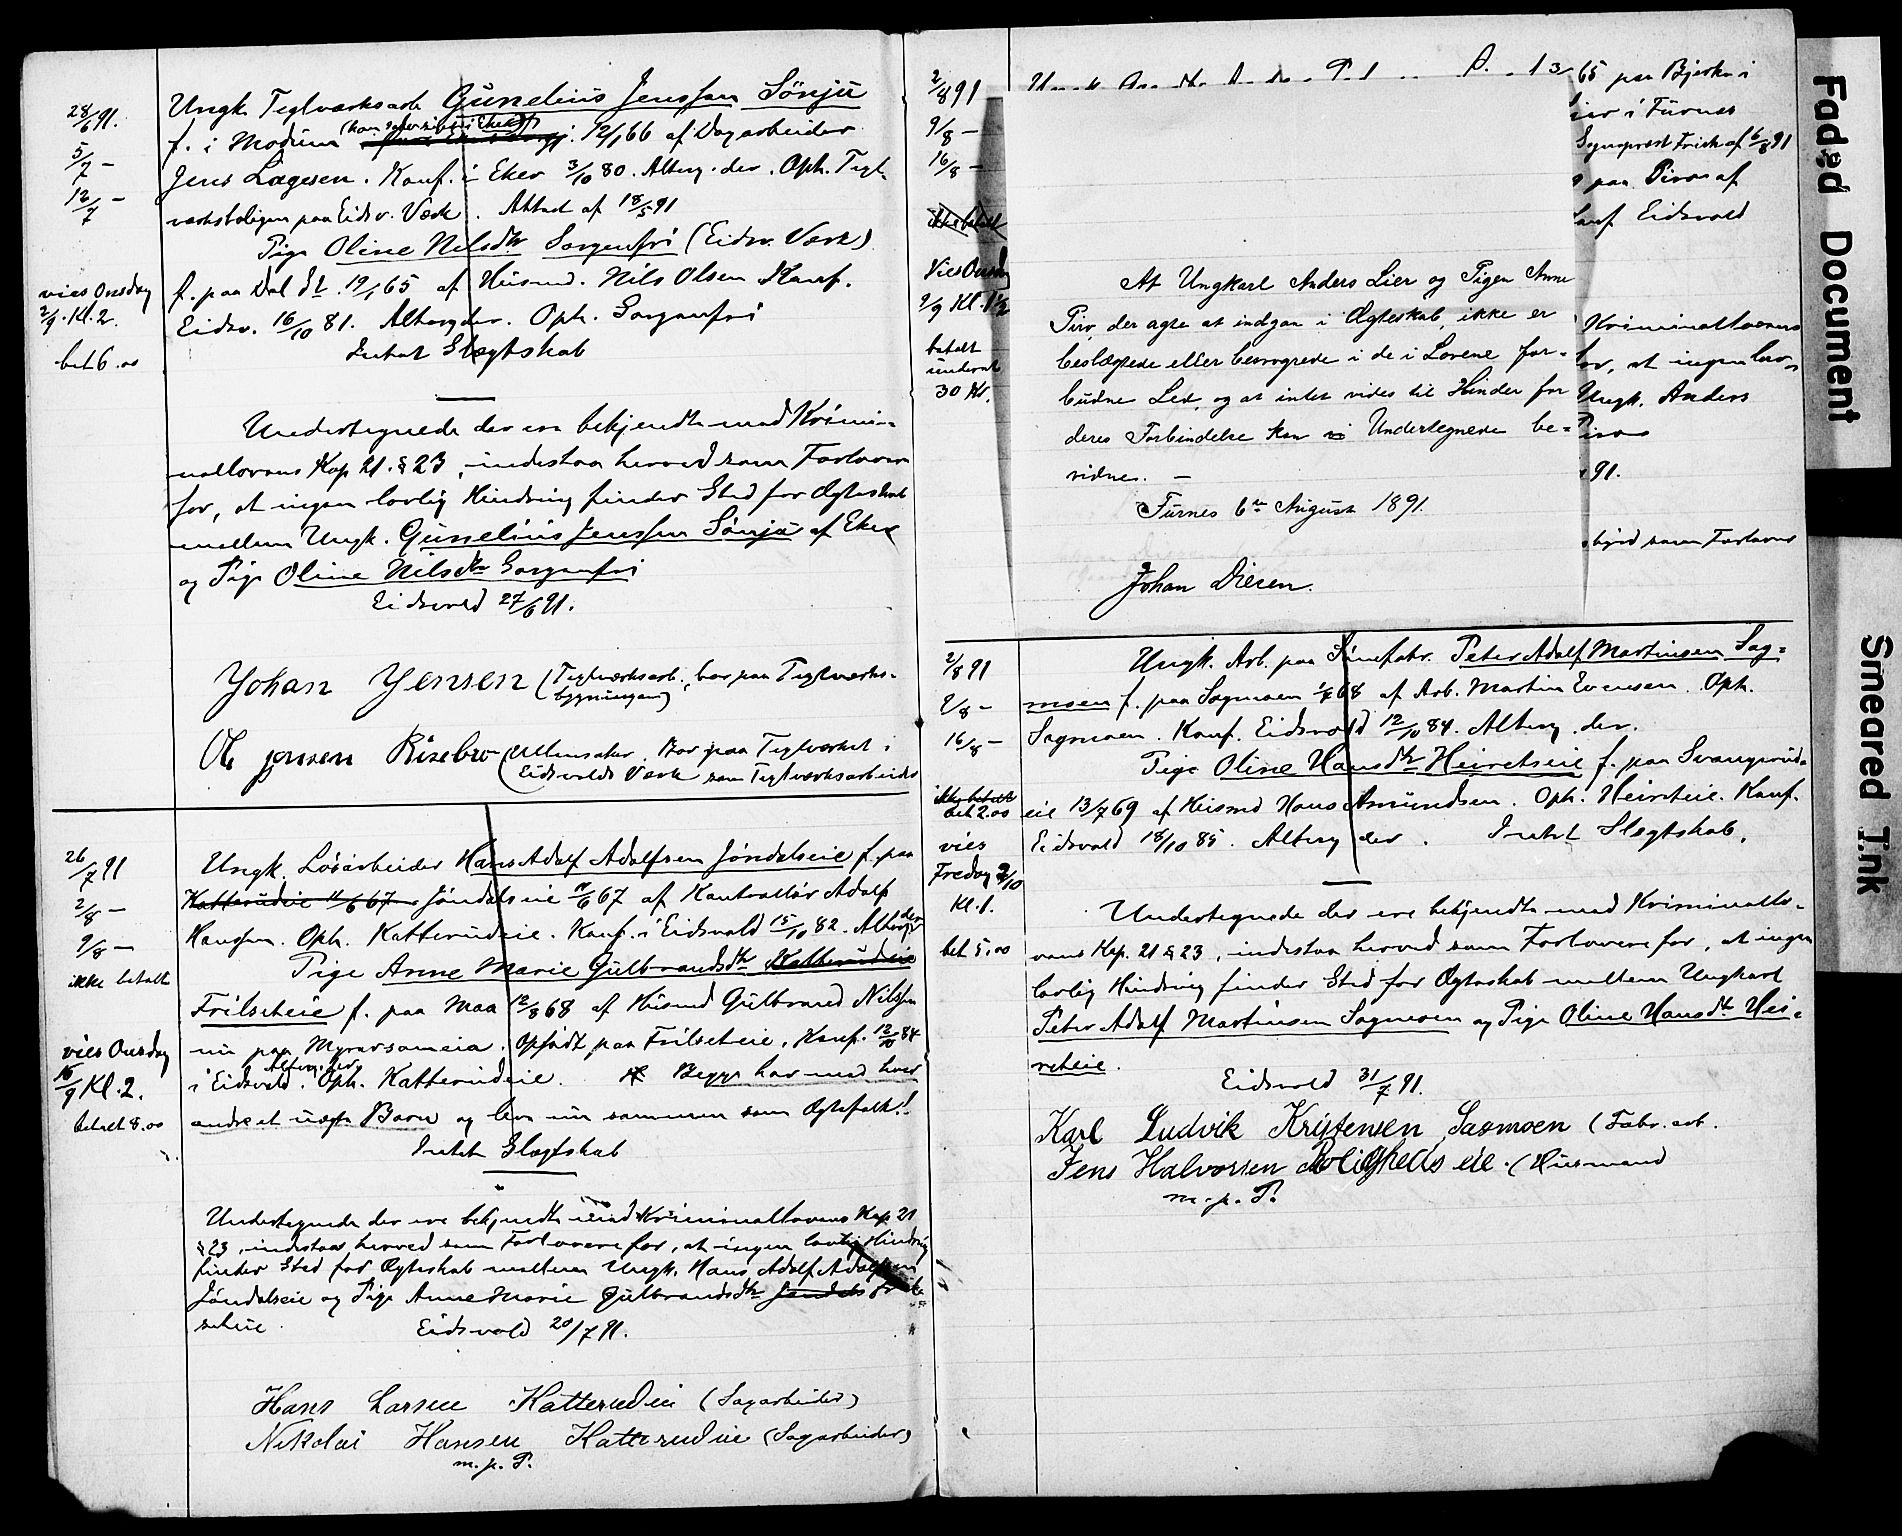 28/6 91.
5/7 –
12/7 –
vies Onsdag
2/9. Kl. 2.
bet 6.00
Ungk. Teglværksarb Gunelius Jenssen Sønju
f. i Modum 12/1 66 af Dagarbeider
Jens Lagesen. Konf. i Eker 3/10 80. Alterg. der. Oph. Tegl-
værksboligen paa Eidsv. Værk. Attest af 18/5 91
Pige Oline Nilsdtr Sorgenfri (Eidsv. Værk)
f. paa Dal 19/1 65 af Husmd. Nils Olsen Konf.
Eidsv. 16/10 81. Alterg der. Oph. Sorgenfri
Intet Slægtskab
Undertegnede der ere bekjendte med Krimi-
nallovens Kap 21. § 23, indestaa herved som Forlovere
for, at ingen lovlig Hindring finder Sted for Ægteskab
mellem Ungk. Gunelius Jenssen Sønju af Eker
og Pige Oline Nilsdtr Sorgenfri
Eidsvold 27/6 91.
Johan Jensen (Teglværksarb., bor paa Teglværks-
bygningen)
Ole Jensen Risebro (Ullensaker. Bor paa Teglværket i
Eidsvolds Værk som Teglværksarbeider
26/7 91
2/8 –
9/8 –
ikke betalt
vies Onsdag
16/9 Kl. 2.
betalt 8.00
Ungk. Løsarbeider Hans Adolf Adolfsen Jøndalseie f. paa
Katterudeie 11/6 67 Jøndalseie 11/6 67 af Kontrollør Adolf
Hanssen. Oph. Katterudeie. Konf. i Eidsvold 15/10 82. Alterg der
Pige Anne Marie Gulbrandsdtr Katterudeie
Frilseteie f. paa Maa 12/8 68 af Husmd Gulbrand Nilssen
nu paa Myrarsameia. Opfødt paa Frilseteie, Konf. 12/10 84
i Eidsvold. Alterg. der Oph. Katterudeie. Begge har med hver
andre et uægte Barn og lever nu sammen som Ægtefolk!
Intet Slægtskab
Undertegnede der ere bekjendte med Kriminallovens Kap 21
§ 23, indestaa herved som Forlovere for, at ingen lovlig Hindring
finder Sted for Ægteskab mellem Ungk. Hans Adolf Adolfsen
Jøndalseie og Pige Anne Marie Gulbrandsdtr Fril-
seteie.
Eidsvold 20/7 91.
Hans Larsen Katterudeie (Sagarbeider)
Nikolai Hansen Katterudeie (Sagarbeider)
m. p. P.
2/8 91
9/8 –
16/8 –
ikke betalt
Vies Onsdag
9/9 Kl. 1½
betalt
30 Kr.
65 paa Bjerke i
i Furnes
Sogneprest Frich af 6/8 91
paa Pirou af
Konf Eidsvold
Kriminallovens
for, at ingen lov-
Ungk. Anders
91.
som Forlovere
At Ungkarl Anders Lier og Pigen Anne
Piro, der agte at indgaa i Ægteskab, ikke er
beslægtede eller besvogrede i de i Lovene for-
budne Led, og at intet vides til Hinder for
deres Forbindelse kan Undertegnede be-
vidne. –
Furnes 6te August 1891.
Johan Diesen.
2/8 91
9/8 –
16/8 –
ikke betalt
bet 2.00
vies
Fredag 2/10
Kl. 1.
bet 5.00
Ungk. Arb. paa Peter Adolf Martinsen Sag-
moen f. paa Sagmoen 68 af Arb. Martin Evensen. Oph.
Sagmoen. Konf. Eidsvold 12/10 84. Alterg. der.
Pige Oline Hansdtr Heireteie f. paa Svangerud-
eie 13/7 69 af Husmd Hans Amundsen. Oph. Heireteie. Konf.
Eidsvold 18/10 85. Alterg der. Intet Slægtskab.
Undertegnede der ere bekjendte med Kriminallo-
vens Kap. 21 § 23, indestaa herved som Forlovere for, at ingen
lovlig Hindring finder Sted for Ægteskab mellem Ungkarl
Peter Adolf Martinsen Sagmoen og Pige Oline Hansdtr Hei-
reteie.
Eidsvold 31/7 91.
Karl Ludvik Kristensen Sagmoen (Fabr. arb.
Jens Halvorsen Rolighedseie. (Husmand
m. p. P.
Faded Document
Smeared Ink